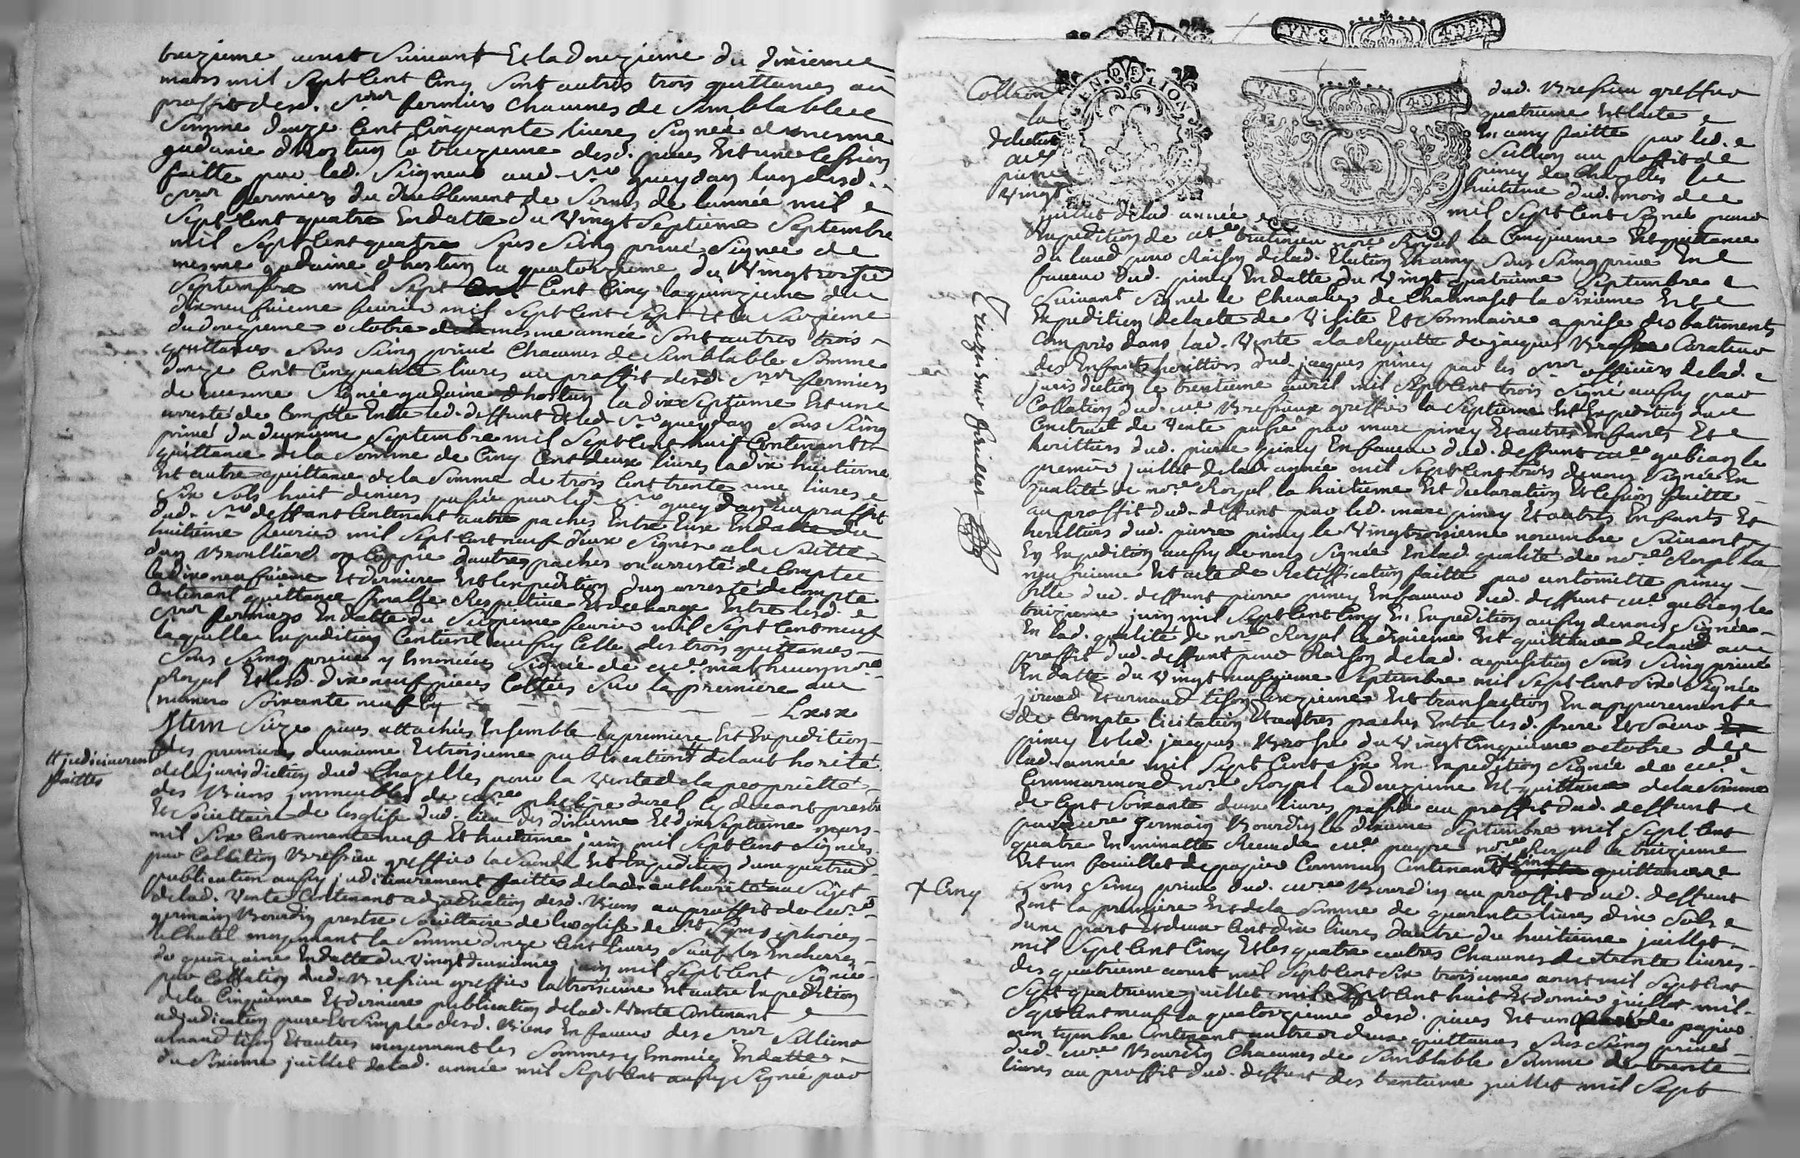 treizieme aoust suivant Et la douzieme du dixieme
mars mil sept Cent Cinq sont autres trois quittances au
proffit desd. Srs fermiers Chacunes de semblable
somme donze Cent Cinquante livres signée de mesme
guedanie dhostun la treizieme desd. pieces Est une Cession
faitte par led. Seigneur aud. Sr gueydan lung desd.
Srs fermiers du doublement de sirnes de lannée mil
sept Cent quatre En datte du Vingt septieme septembre
mil sept Cent quatre sous seing privé signée de
mesme guedaine dhostun la quatorzieme du Vingt
septembre mil sept Cent Cinq la quinzieme du
dix neufvieme feuvrier mil sept Cent sept Et la seizieme
du douzieme octobre mesme année sont autres trois
quittances sous seing privé Chacunes de semblable somme
donze Cent Cinquante livres au proffit desd. Srs fermiers
de mesme signée guedaine dhostun la dix septieme Est une
arresté de Compte Entre led. deffunt Et led. Sr gueydan sous seing
privé du deuxieme septembre mil sept Cent huit Contenant
quittance de la somme de Cinq Cent deux livres la dix huitieme
Est autre quittance de la somme de trois Cent trente une livres
six sols huit deniers passée par led. Sr gueydan au proffit
dud. Sr deffunt Contenant autre paches Entre Eux En datte du
huitieme feuvrier mil sept Cent neuf deux signés a la suitte
dun Brouillard ou Coppie dautres paches ou arresté de Compte
la dix neufvieme Et derniere Est Expedition dun arresté de Compte
Contenant quittance finalle Respective Et descharge Entre lesd.
Srs fermiers En datte du sixieme feuvrier mil sept Cent neuf
laquelle Expedition Contient aussy Celle des trois quittances
sous seing privé y Enoncées signée de me mathieu nore
Royal Et lesd. dix neuf pieces Cottées sur la premiere au
numero soixante neuf Cy LXIX
Item seize pieces attachées Ensemble la premiere Est Expedition
des premiere deuxieme Et troisieme publication # de lauthorité
# judiciairement
faittes
de la jurisdiction dud. Chazelles pour la Vente de la proprietté
des Biens immeubles de me phelipe durel Cy devant prestre
Et socilttaire de leglise dud. lieu des dixieme Et dix septieme mars
mil six Cent nonante neuf Et huitieme juin mil sept Cent signées
par Collation Bressieu greffier la seconde Est Expedition dune quatrieme
publication aussy judiciairement faittes de lad. authorité au sujet
de lad. Vente Contenant adjudication desd. Biens au proffit de me
germain Bourdin prestre socilttaire de leglise de St simphorien
le Chatel moyennant la somme donze Cent livres sauf les Encheres
de quinzaine En datte du Vingt deuxieme juin mil sept Cent signée
par Collation dud. Bressieu greffier la troisieme Est autre Expedition
de la Cinquieme Et derniere publication de lad. Vente Contenant
adjudication pure Et simple desd. Biens En faveur des Srs
arnaud tison Et autres moyennant les sommes y Enoncées En datte
du sixieme juillet de lad. année mil sept Cent aussy signée par
GEN. DE LYON
VN. S. 4. DEN
G. D. LYON
Collation
la
dud. Bressieu greffier
quatrieme Est acte
En amy faitte par led.
au proffit de
piney de Chazelles le
huitieme dud. mois de
juillet de lad. année mil sept Cent signée par
Expedition de me nore Royal la Cinquieme Est quittance
du laud pour Raison de lad. Election En amy sous seing privé En
faveur dud. piney En datte du Vingt quatrieme septembre
suivant signée le Chevalier de Chalmazel la sixieme Est
Expedition de lacte de Visite Et sommaire a prise des batiments
Compris dans lad. Vente a la Requette de jacques Curateur
des Enfants heritiers dud. jacques piney par les Srs officiers de lad.
jurisdiction le trentieme avril mil sept Cent trois signé aussy par
Collation dud. me Bressieux greffier la septieme Est Expedition du
Contract de Vente passé par marc piney Et autres Enfants Et
heritiers dud. pierre piney En faveur dud. deffunt me gubian le
premier juillet de lad. année mil sept Cent trois de nous signée En
qualité de nore Royal la huitieme Est declaration Et Cession faitte
au proffit dud. deffunt par led. marc piney Et autres Enfants Et
heritiers dud. pierre piney le Vingt troisieme novembre suivant
En Expedition aussy de nous signée En lad. qualité de nore Royal la
neufvieme Est acte de Retiffication faitte par antoinette piney
fille dud. deffunt pierre piney En faveur dud. deffunt me gubian le
treizieme juin mil sept Cent Cinq En Expedition aussy de nous signée
En lad. qualité de nore Royal la dixieme Est quittance de laud au
proffit dud. deffunt pour Raison de lad. aquisition sous seing privé
En datte du Vingt neufvieme septembre mil sept Cent six signée
Et arnaud tison onzieme Est transaction En appurement
de Compte licitation Et autres paches Entre lesd. frere Et soeur
piney Et led. jacques du Vingt Cinquieme octobre de
lad. année mil sept Cent six En Expedition signée de me
Commarmond nore Royal la douzieme Est quittance de la somme
de Cent soixante deux livres passée au proffit dud. deffunt
par messire germain Bourdin le dixieme septembre mil sept Cent
quatre En minutte Receüe de me payre nore Royal la treizieme
Est un feuillet de papier Commun Contenant quittances
+ Cinq
sous seing privé dud. me Bourdin au proffit dud. deffunt
dont la premiere Est de la somme de quarente livres dix sols
dune part Et deux Cent dix livres dautre du huitieme juillet
mil sept Cent Cinq Et les quatre autres Chacunes de trente livres
des quatrieme aoust mil sept Cent six troisieme aoust mil sept Cent
sept quatrieme juillet mil sept Cent huit Et dernier juillet mil
sept Cent neuf la quatorzieme desd. pieces Est un de papier
non tymbré Contenant autres deux quittances sous seing privé
dud. me Bourdin Chacunes de semblable somme de trente
livres au proffit dud. deffunt des trentieme juillet mil sept